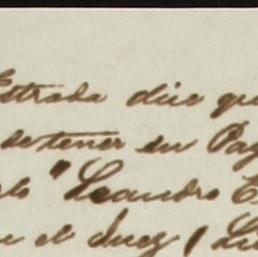 Estrada dice que
detener su Pag
"Leandro E
el Juez